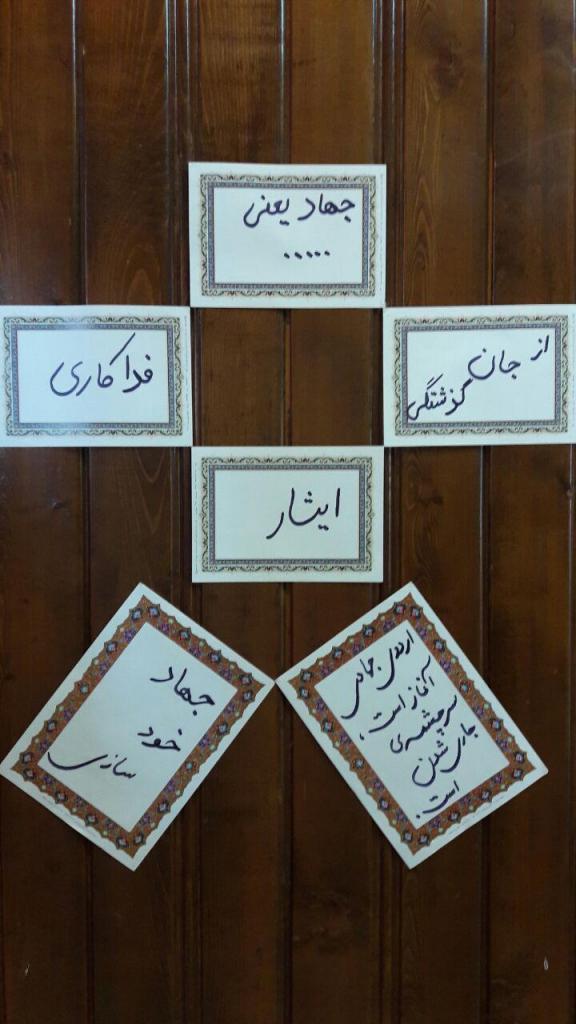 جهاد یعنی
.....
از جان
گذشتگی
فداکاری
ایثار
اردوی جهادی
آغاز است،
سرچشمه‌ی
جاری شدن
است.
جهاد
خود
سازی